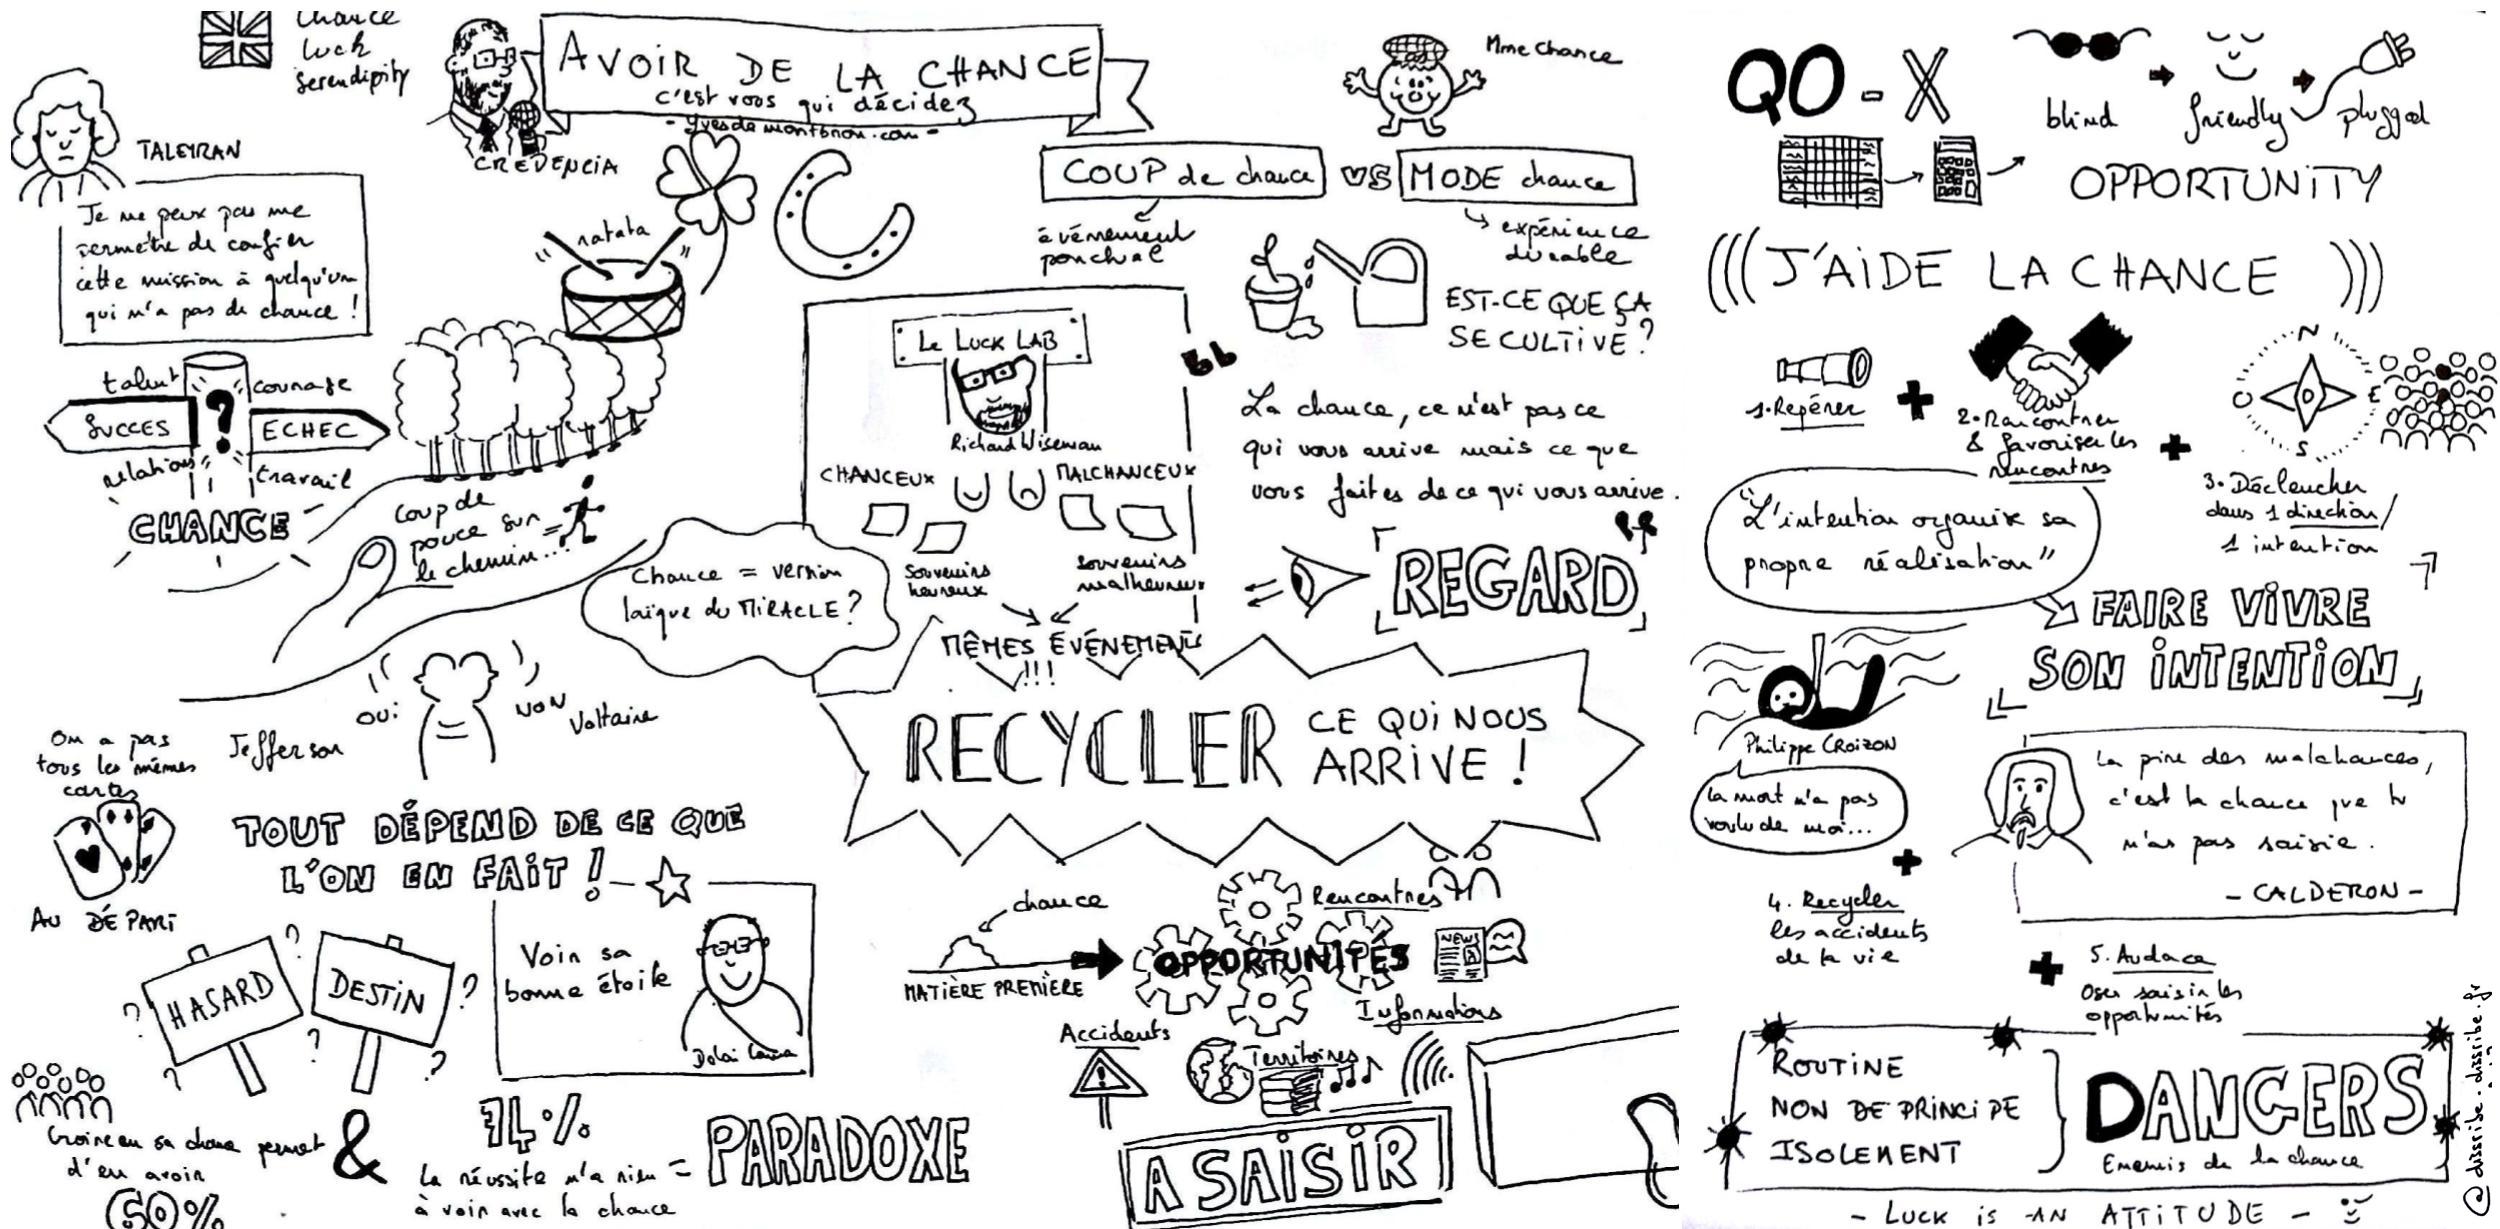 Chance
luck
serendipity
AVOIR DE LA CHANCE
c'est vous qui décidez
- yvesdemontbron.com -
CREDENCIA
TALEYRAN
Je ne peux pas me
permètre de confier
cette mission à quelqu'un
qui n'a pas de chance !
talent
courage
SUCCES
?
ECHEC
relations
travail
CHANCE
ratata
coup de
pouce sur
le chemin...
Chance = version
laïque du MIRACLE ?
OUI
NON
Jefferson
Voltaire
On a pas
tous les mêmes
cartes
AU DÉPART
TOUT DÉPEND DE CE QUE
L'ON EN FAIT !
HASARD
DESTIN
? ? ? ? ? ?
Voir sa
bonne étoile
Dalai Lama
Croire en sa chance permet
d'en avoir
60%
&
74%
la réussite n'a rien
à voir avec la chance
= PARADOXE
Mme Chance
COUP de chance
VS
MODE chance
événement
ponctuel
expérience
durable
EST-CE QUE ÇA
SE CULTIVE ?
Le LUCK LAB
Richard Wiseman
CHANCEUX
MALCHANCEUX
Souvenirs
heureux
souvenirs
malheureux
MÊMES ÉVÉNEMENTS
!!!
La chance, ce n'est pas ce
qui vous arrive mais ce que
vous faites de ce qui vous arrive.
REGARD
RECYCLER CE QUI NOUS
ARRIVE !
chance
MATIÈRE PREMIÈRE
OPPORTUNITÉS
Rencontres
NEWS
Informations
Accidents
!
Territoires
A SAISIR
QO - X
blind
friendly
plugged
OPPORTUNITY
(((J'AIDE LA CHANCE)))
1. Repérer
+
2. Rencontrer
& favoriser les
rencontres
+
N
O
E
S
3. Déclencher
dans 1 direction/
1 intention
"L'intention organise sa
propre réalisation"
FAIRE VIVRE
SON INTENTION
Philippe CROIZON
la mort n'a pas
voulu de moi...
+
4. Recycler
les accidents
de la vie
La pire des malchances,
c'est la chance que tu
n'as pas saisie.
- CALDERON -
+
5. Audace
Oser saisir les
opportunités
ROUTINE
NON DE PRINCIPE
ISOLEMENT
DANGERS
Ennemis de la chance
- LUCK is AN ATTITUDE -